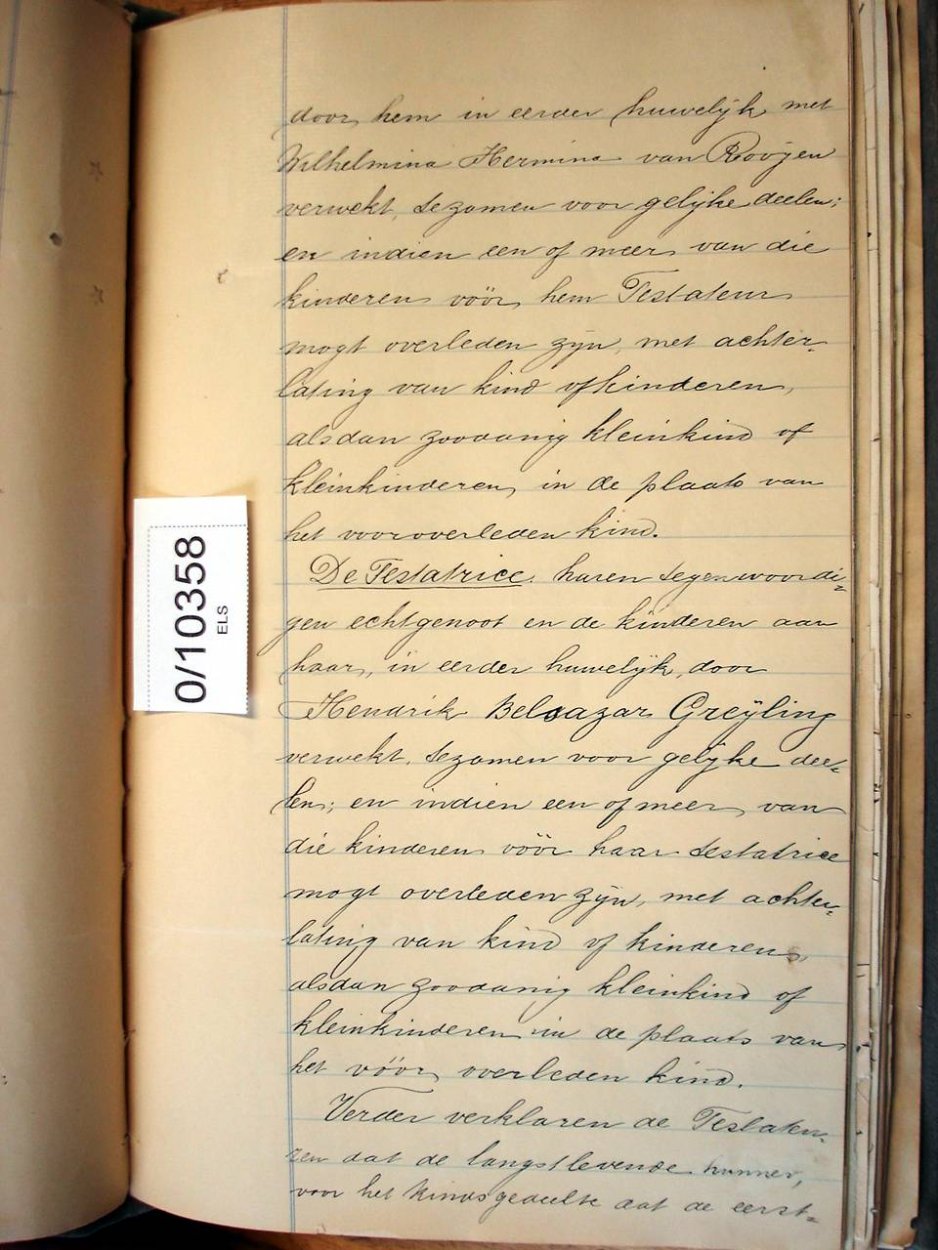 door hem in eerder huwelijk met
Wilhelmina Hermina van Rooÿen
verwekt, tezamen voor gelijke deelen;
en indien een of meer van die
kinderen vöör hem Testateur
mogt overleden zijn, met achter-
lating van kind of kinderen,
alsdan zoodanig kleinkind of
kleinkinderen in de plaats van
het vooroverleden kind.
De Testatrice, haren tegenwoordi-
gen echtgenoot en de kinderen aan
haar, in eerder huwelijk, door
Hendrik Belsazar Greÿling
verwekt, tezamen voor gelijke dee-
len; en indien een of meer van
die kinderen vöör haar testatrice
mogt overleden zijn, met achter-
lating van kind of kinderen,
alsdan zoodanig kleinkind of
kleinkinderen in de plaats van
het vöör overleden kind.
Verder verklaren de Testateu-
ren dat de langstlevende hunner,
voor het kindsgedeelte dat de eerst-
0/10358
ELS